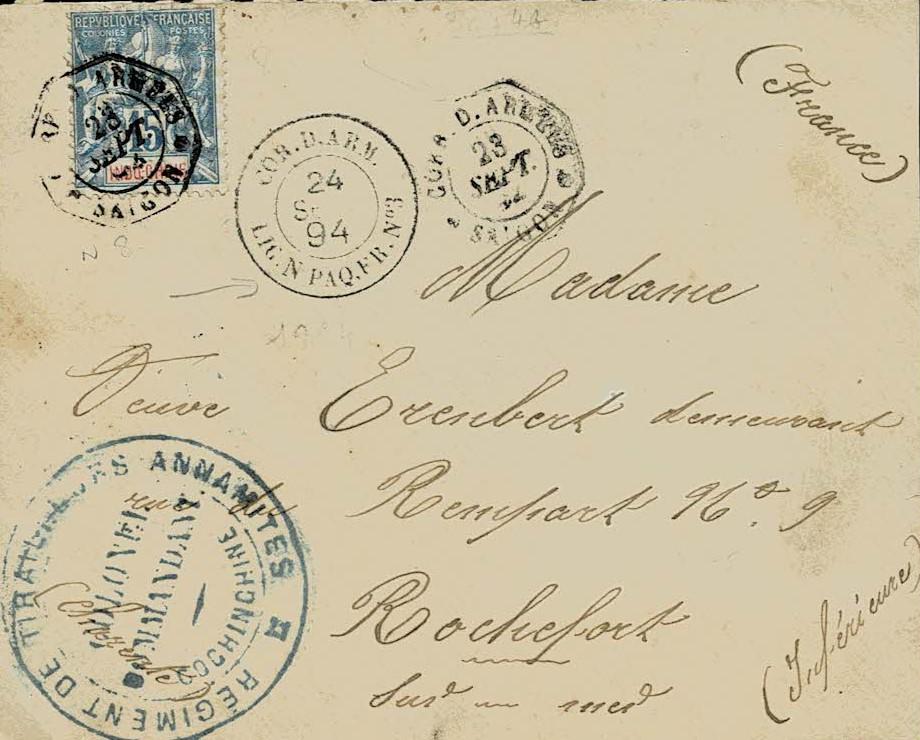 RÉPUBLIQUE FRANÇAISE
COLONIES POSTES
15
INDO-CHINE
23
SEPT.
SAIGON
COR. D. ARM.
24
94
LIG. N PAQ. FR. Nº3
CORR. D. ARMÉES
23
SEPT.
SAIGON
(France)
Madame
Veuve Erenbert demeurant
rue du Rempart Nº. 9
Rochefort
Sur mer
(Charente
Inférieure)
RÉGIMENT DE TIRAILLEURS ANNAMITES
COLONEL
COMMANDANT
COCHINCHINE